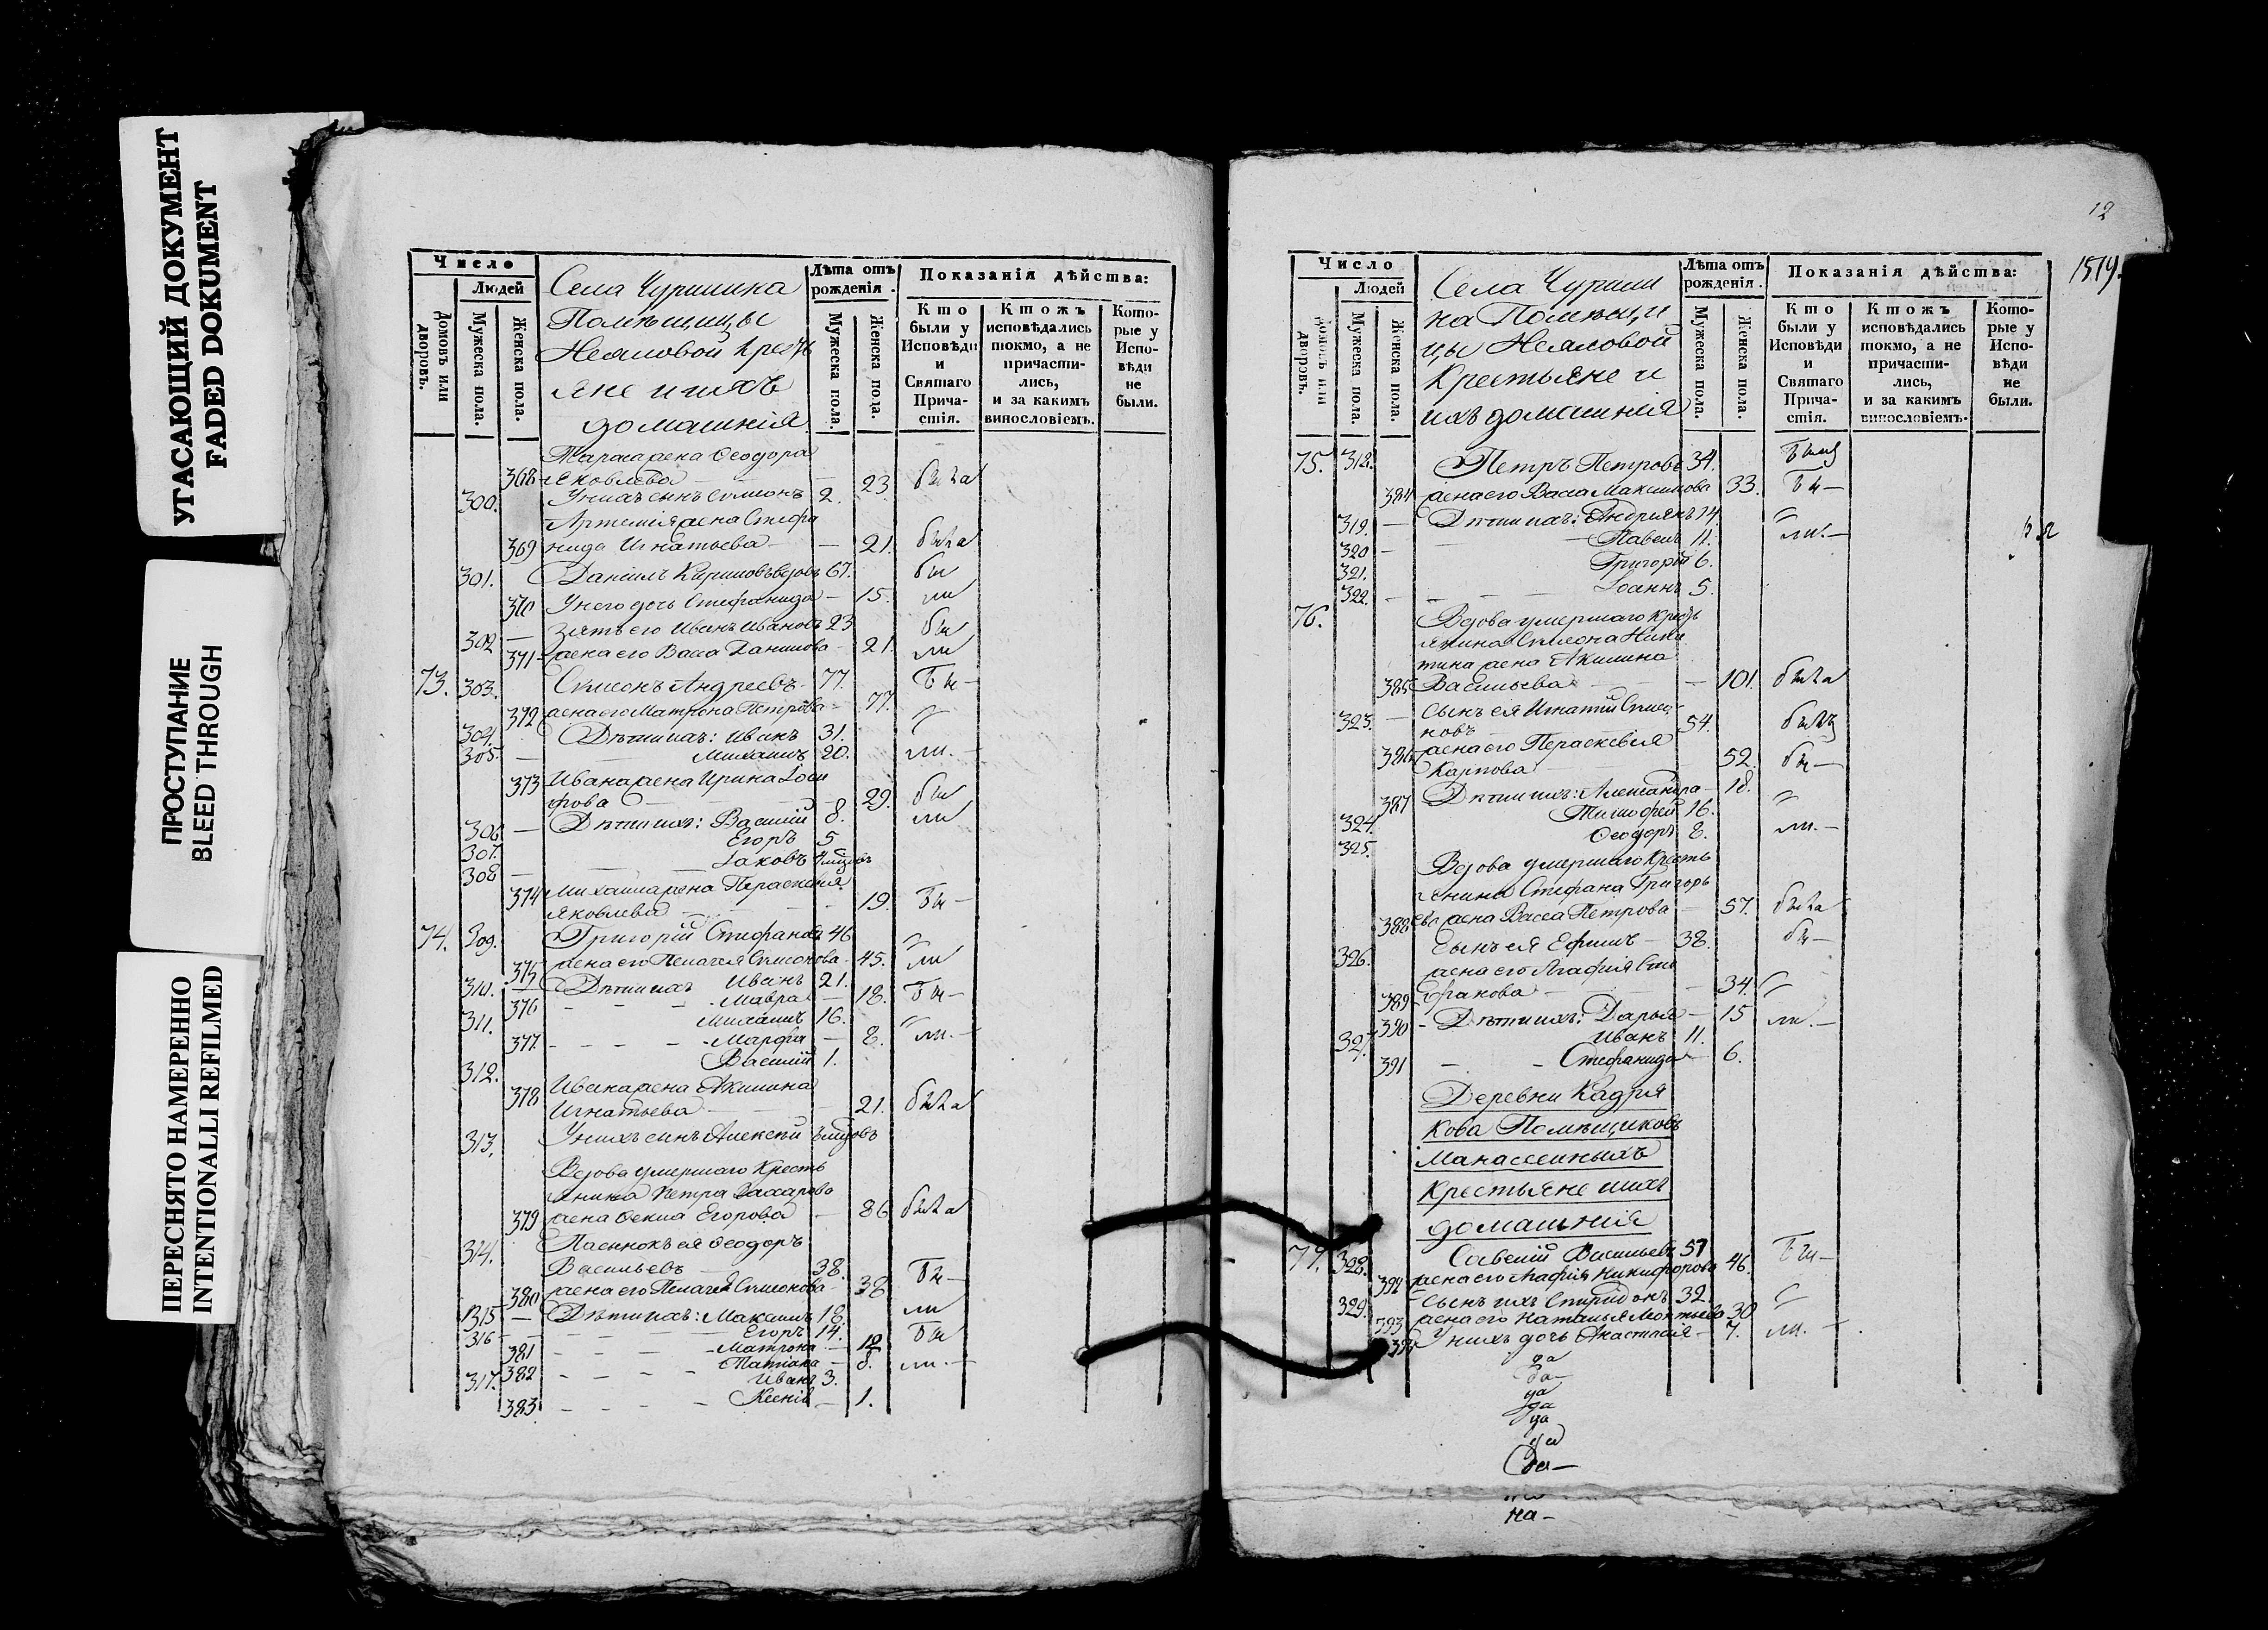 УГАСАЮЩИЙ ДОКУМЕНТ
FADED DOKUMENT
ПРОСТУПАНИЕ
BLEED THROUGH
ПЕРЕСНЯТО НАМЕРЕННО
INTENTIONALLI REFILMED
Число
Людей
Домовъ или дворовъ.
Мужеска пола.
Женска пола.
Села Чуришка
Помѣщицы
Крестья
яне и ихъ
домашнія
Лѣта отъ рожденія.
Мужеска пола.
Женска пола.
Показанія дѣйства:
Кто были у Исповѣди и Святаго Причастія.
Ктожъ исповѣдались токмо, а не причастились, и за какимъ винословіемъ.
Которые у Исповѣди не были.
жена Ѳеодора
368 Яковлева — 23. была
300. У нихъ сынъ Симіонъ 2.
Артемія жена Стефа
369 нида Игнатьева — 21. была
301. Даніилъ вдовъ 67. бы
370 У него дочь Стефанида — 15. ли
302 — зять его Иванъ Ивановъ 23 бы
371 жена его Васса Данилова — 21. ли
73. 303. Симеонъ Андреевъ 77. бы —
372 жена его Матрона Петрова — 77.
304. Дѣти ихъ: Иванъ 31.
305. — Михаилъ 20. ли. —
373 Ивана жена Ирина
фова — 29. бы
306. — Дѣти ихъ: Василій 8. ли
307. Егоръ 5
308 — Іаковъ
374 Михаила жена Параскевія
Яковлева — 19. бы —
74. 309. Григорій Стефановъ 46
375 жена его Пелагея Симонова 45. ли
310. Дѣти ихъ Иванъ 21.
376 — Мавра — 18. бы —
311. Михаилъ 16.
377. — Марфа — 8. ли. —
312. Василій 1.
378 Ивана жена Акилина
Игнатьева — 21. была
313. У нихъ сынъ Алексѣй
Вдова умершаго Кресть
янина Петра Захарова
379 жена Ѳекла Егорова — 86 была
314. Пасынокъ ея Ѳеодоръ
Васильевъ 38. бы —
380 жена его Пелагея Симонова — 38
315 — Дѣти ихъ: Максимъ 18. ли
316 — Егоръ 14. бы
381 — Матрона — 12
382 — Татіана — 8. ли. —
317. Иванъ 3.
383. — Ксенія — 1.
12
1819.
Число
Людей
Домовъ или дворовъ.
Мужеска пола.
Женска пола.
Села Чуриш
ка Помѣщи
цы
Крестьяне и
ихъ домашнія
Лѣта отъ рожденія.
Мужеска пола.
Женска пола.
Показанія дѣйства:
Кто были у Исповѣди и Святаго Причастія.
Ктожъ исповѣдались токмо, а не причастились, и за какимъ винословіемъ.
Которые у Исповѣди не были.
75. 318. Петръ Петровъ 34. былъ
384 жена его Васса Максимова 33. бы —
319. — Дѣти ихъ: Андріянъ 14.
320 — Павелъ 11. ли. —
321. Григорій 6.
322. — Іоаннъ 5.
76. Вдова умершаго Кресть
янина Симеона Ники
тина жена Акилина
385 Васильева — 101. была
323. — Сынъ ея Игнатій Симео
новъ 54. былъ
386 жена его Параскевія
Карпова — 52. бы —
387 Дѣти ихъ: Александра — 18.
324. Тимофей 16.
325. Ѳеодоръ 8. ли. —
Вдова умершаго Кресть
янина Стефана Григорь
388 ева жена Васса Петрова — 57. была
326. Сынъ ея Ефимъ — 38. бы —
жена его Агафія Сте
389 фанова — 34.
390 - Дѣти ихъ: Дарья — 15 ли. —
327. Иванъ 11.
391 — Стефанида — 6.
Деревни Кадря
кова Помѣщиковъ
Манассеиныхъ
Крестьяне и ихъ
домашнія
77. 328. Савелій Васильевъ 57 бы —
392 жена его Агафія Никифорова 46.
329. Сынъ ихъ Спиридонъ 32.
393 жена его Наталья 30
394 У нихъ дочь Анастасія — 7. ли. —
да
да
да
да
да
да
да —
на —